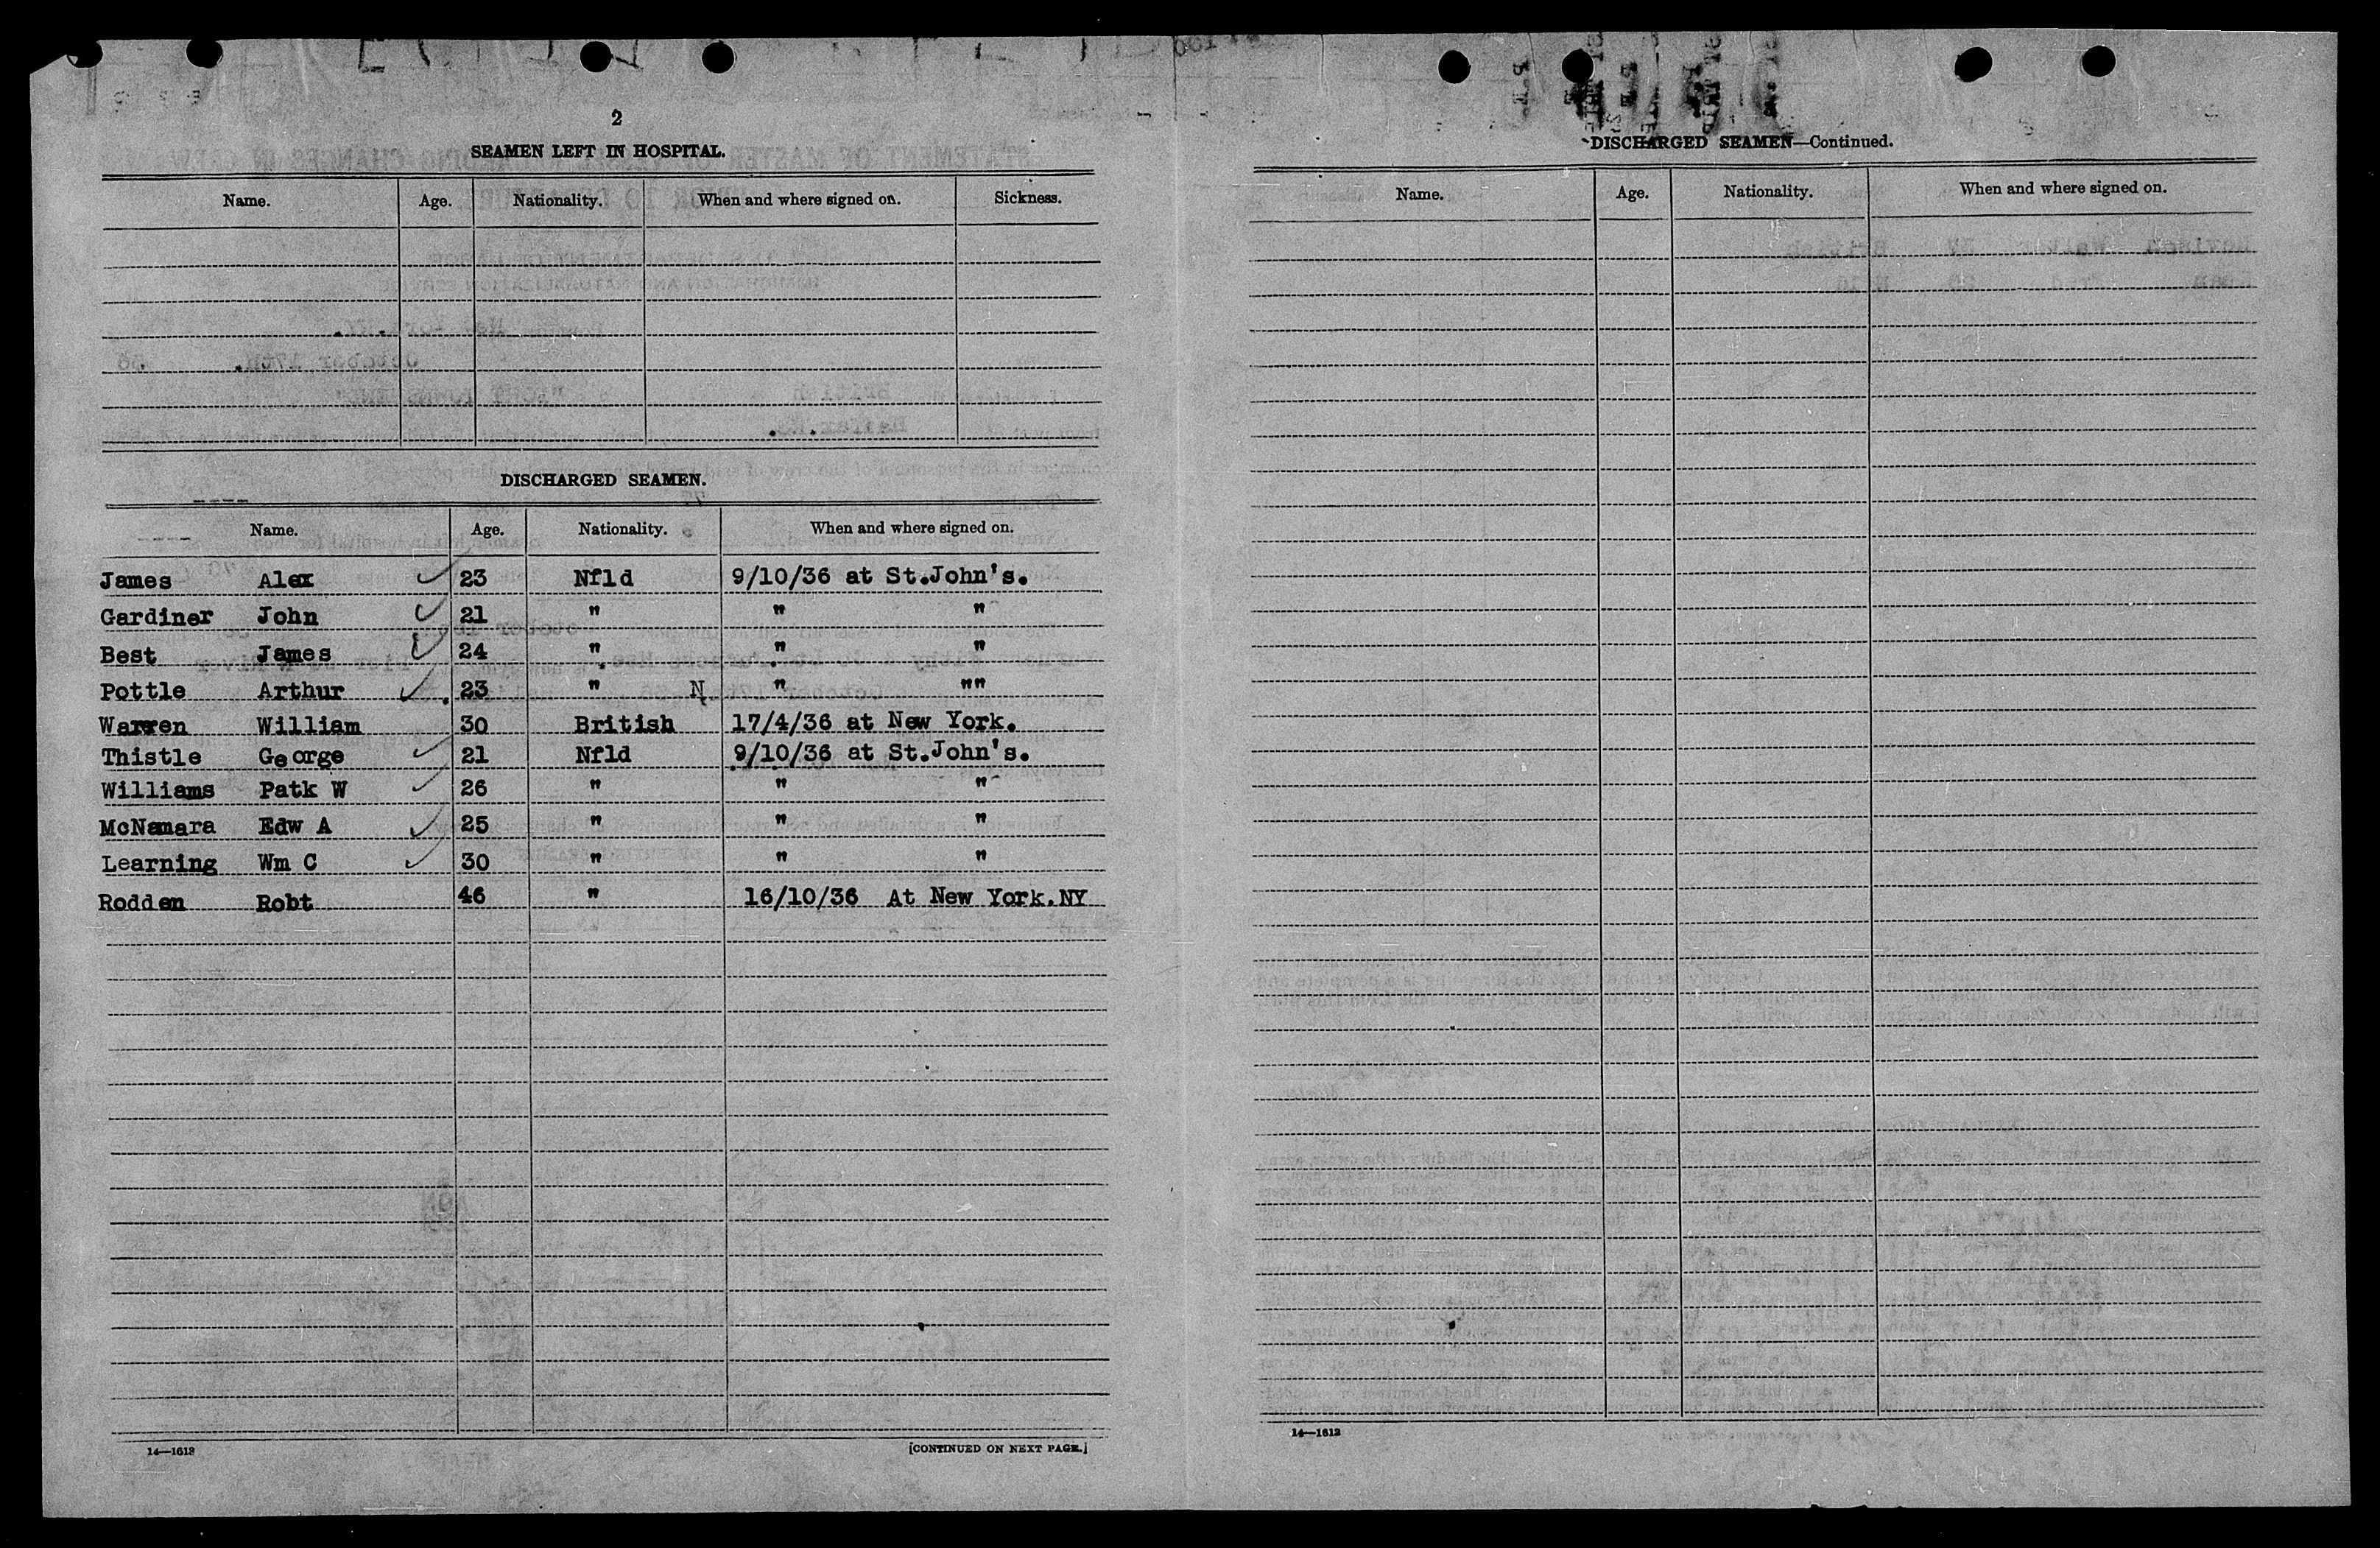 2
SEAMEN LEFT IN HOSPITAL.
Name. Age. Nationality. When and where signed on. Sickness.
DISCHARGED SEAMEN.
Name. Age. Nationality. When and where signed on.
James Alex 23 Nfld 9/10/36 at St.John's.
Gardiner John 21 " " "
Best James 24 " " "
Pottle Arthur 23 " N " ""
Warren William 30 British 17/4/36 at New York.
Thistle George 21 Nfld 9/10/36 at St.John's.
Williams Patk W 26 " " "
McNamara Edw A 25 " " "
Learning Wm C 30 " " "
Rodden Robt 46 " 16/10/36 At New York.NY
14—1613
[CONTINUED ON NEXT PAGE.]
DISCHARGED SEAMEN—Continued.
Name. Age. Nationality. When and where signed on.
14—1613